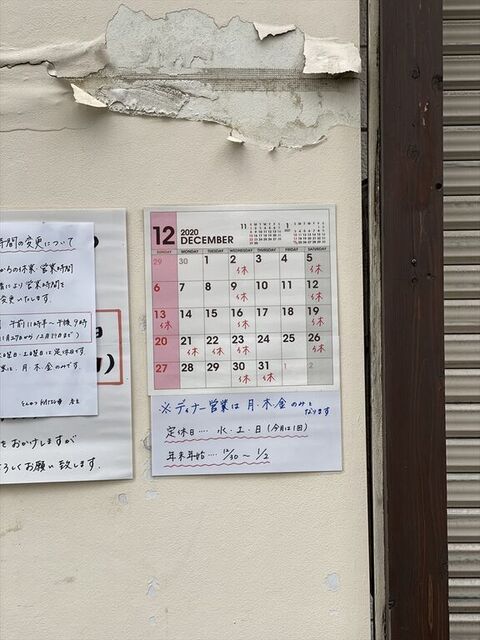 時間の変更について
からの休業・営業時間
により営業時間を
変更いたします。
午前11時半～午後9時
11月27日から12月17日まで)
水曜日・土曜日は定休日です。
業は、月・木・金のみです。
とんかつ
店主
をおかけしますが
よろしくお願い致します.
12
2020
DECEMBER
11
1
SUNDAY MONDAY TUESDAY WEDNESDAY THURSDAY FRIDAY SATURDAY
29 30 1 2 3 4 5
休 休
6 7 8 9 10 11 12
休 休
13 14 15 16 17 18 19
休 休 休
20 21 22 23 24 25 26
休 休 休 休
27 28 29 30 31 1 2
休 休
※ディナー営業は月・木・金のみと
なります
定休日‥‥ 水・土・日(今月は1回)
年末年始‥‥ 12/30～ 1/2